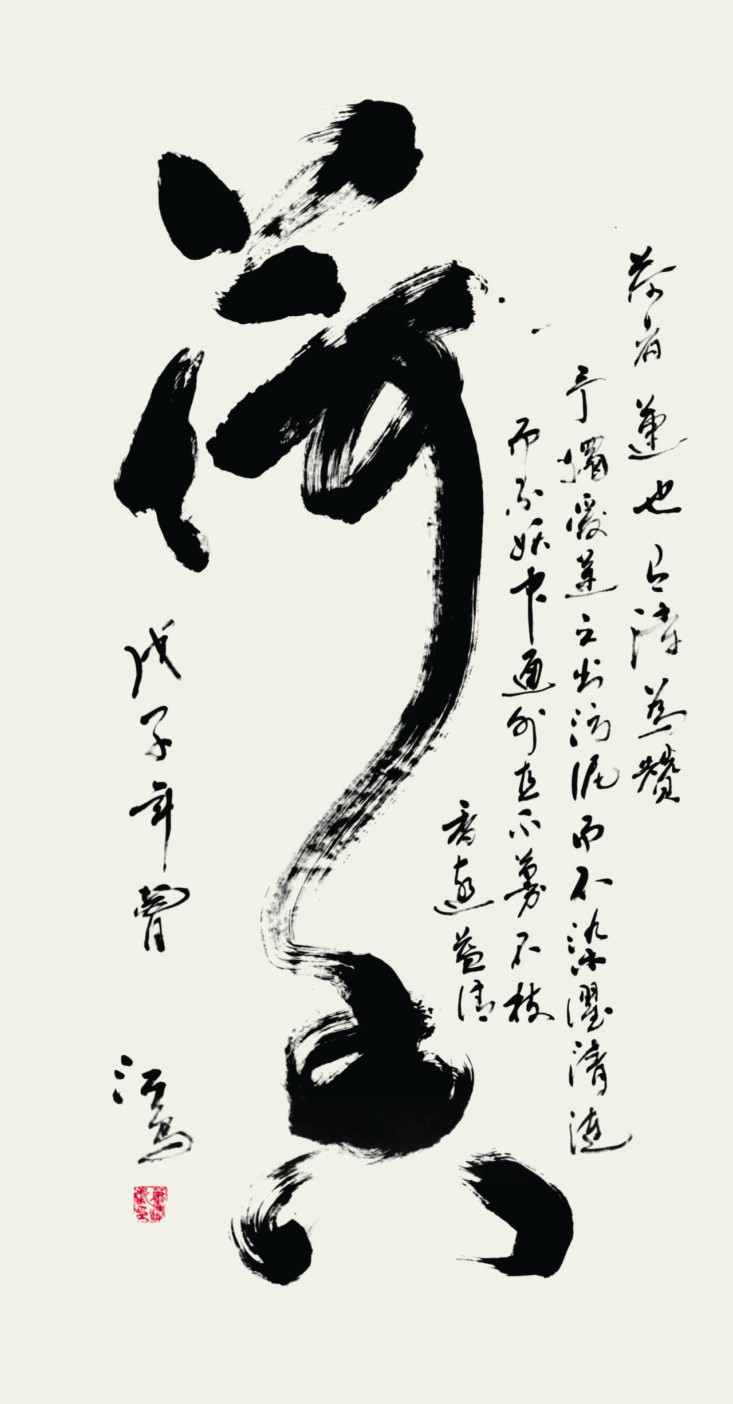 荷
荷者蓮也以詩為贊
予獨愛蓮之出淤泥而不染濯清漣
而不妖中通外直不蔓不枝
香遠益清
戊子年